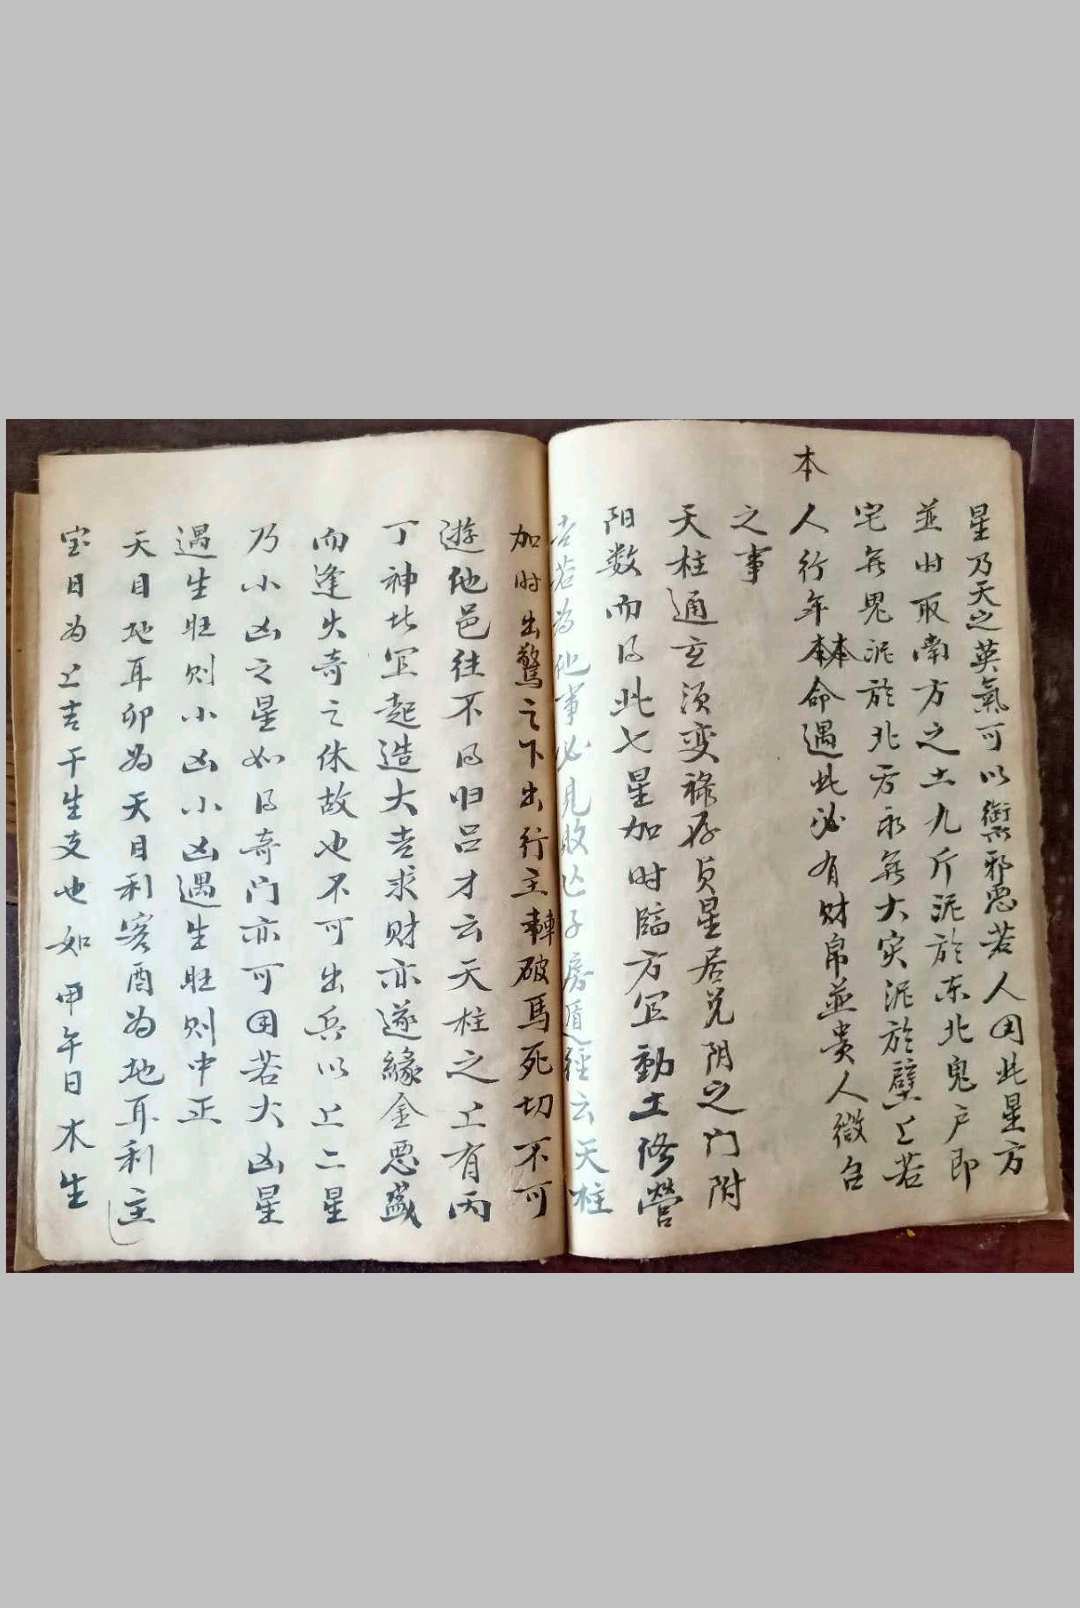 星乃天之英氣可以衝邪惡若人因此星方
並时取南方之土九斤泥於东北鬼户即
宅无鬼泥於北方永无大灾泥於壁上若
本
人行年本本命遇此必有财帛並贵人徵召
之事
天柱通玄须变禄存贞星居兑阴之门附
阳数而得此七星加时臨方宜動土修營
吉若为他事必見敗亡子房遁經云天柱
加时出驚之下出行主車破馬死切不可
遊他邑往不得归吕才云天柱之上有丙
丁神此宜起造大吉求财亦遂緣金惡盛
而逢火奇之休故也不可出兵以上二星
乃小凶之星如得奇门亦可用若大凶星
遇生旺则小凶小凶遇生旺则中正
天目地耳卯为天目利客酉为地耳利主
宝日为上吉干生支也如甲午日木生